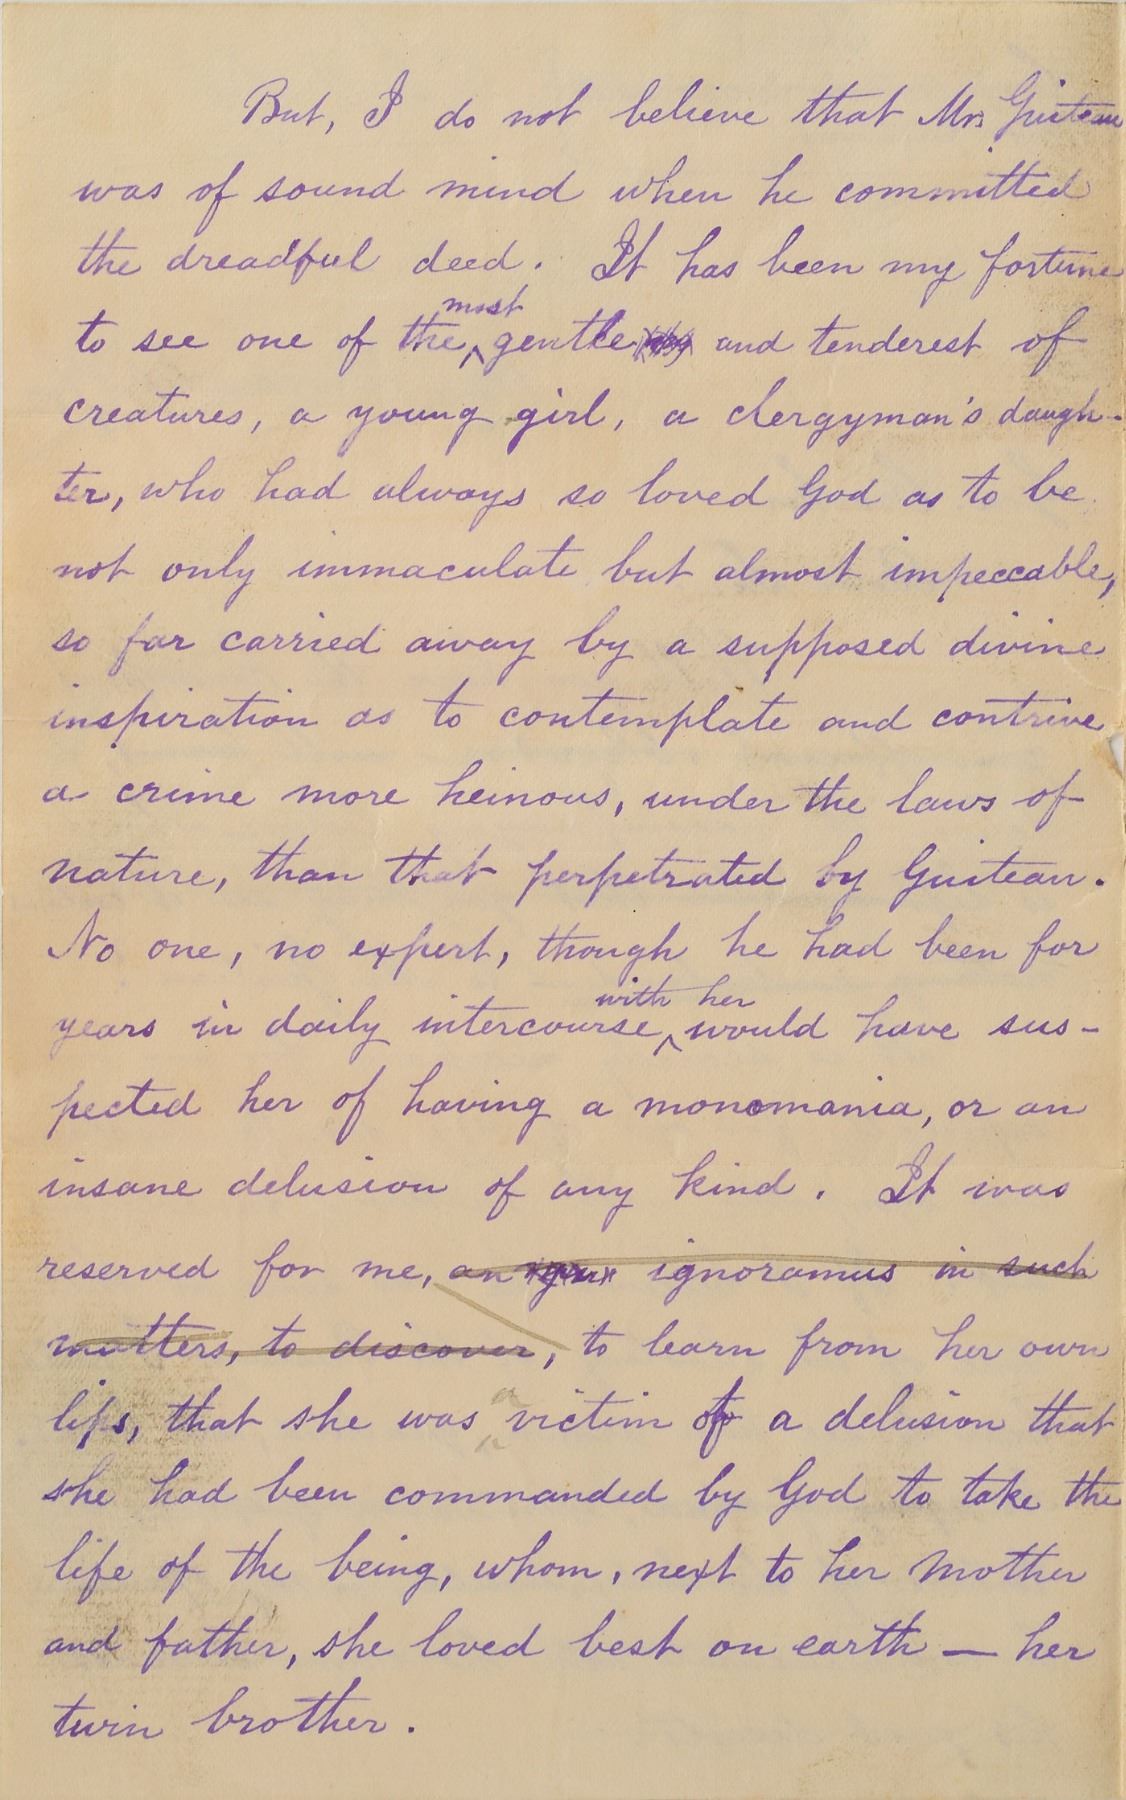 But, I do not believe that Mr. Guiteau
was of sound mind when he committed
the dreadful deed. It has been my fortune
to see one of the most gentle and tenderest of
creatures, a young girl, a clergyman's daugh-
ter, who had always so loved God as to be
not only immaculate but almost impeccable,
so far carried away by a supposed divine
inspiration as to contemplate and contrive
a crime more heinous, under the laws of
nature, than that perpetrated by Guiteau.
No one, no expert, though he had been for
years in daily intercourse, with her would have sus-
pected her of having a monomania, or an
insane delusion of any kind. It was
reserved for me, an ignoramus in such
matters, to discover, to learn from her own
lips, that she was a victim of a delusion that
she had been commanded by God to take the
life of the being, whom, next to her mother
and father, she loved best on earth — her
twin brother.